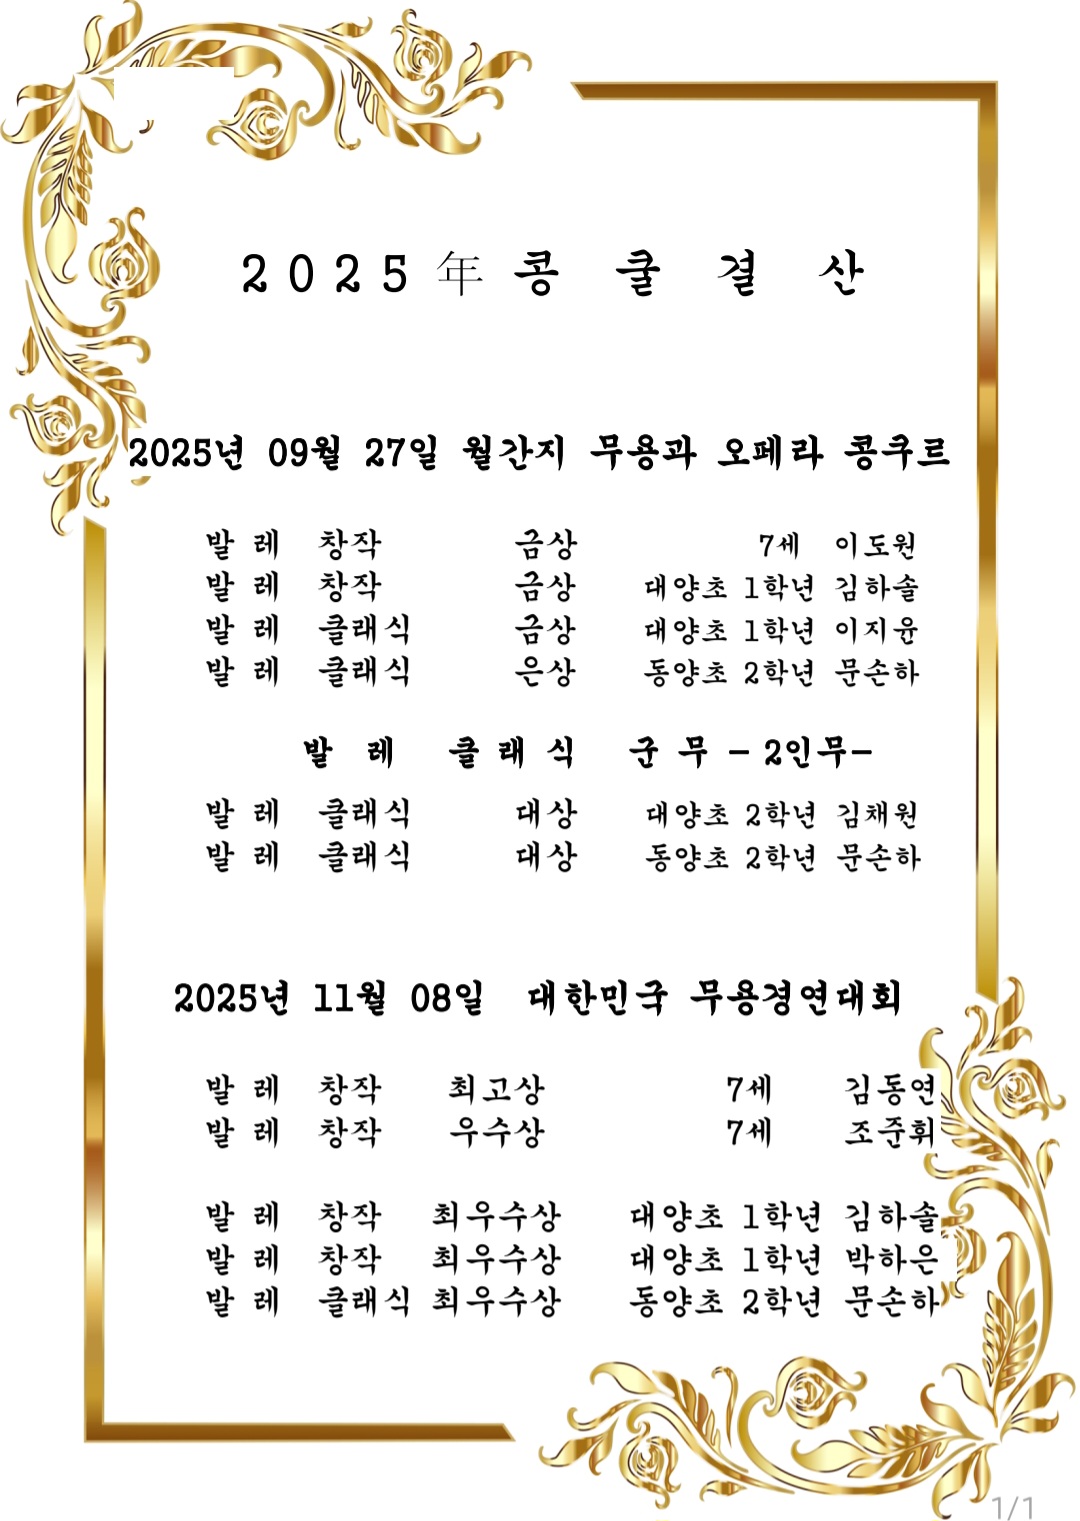 2025年 콩 쿨 결 산
2025년 09월 27일 월간지 무용과 오페라 콩쿠르
발 레 창작 금상 7세 이도원
발 레 창작 금상 대양초 1학년 김하솔
발 레 클래식 금상 대양초 1학년 이지윤
발 레 클래식 은상 동양초 2학년 문손하
발 레 클 래 식 군 무 - 2인무-
발 레 클래식 대상 대양초 2학년 김채원
발 레 클래식 대상 동양초 2학년 문손하
2025년 11월 08일 대한민국 무용경연대회
발 레 창작 최고상 7세 김동연
발 레 창작 우수상 7세 조준휘
발 레 창작 최우수상 대양초 1학년 김하솔
발 레 창작 최우수상 대양초 1학년 박하은
발 레 클래식 최우수상 동양초 2학년 문손하
1/1